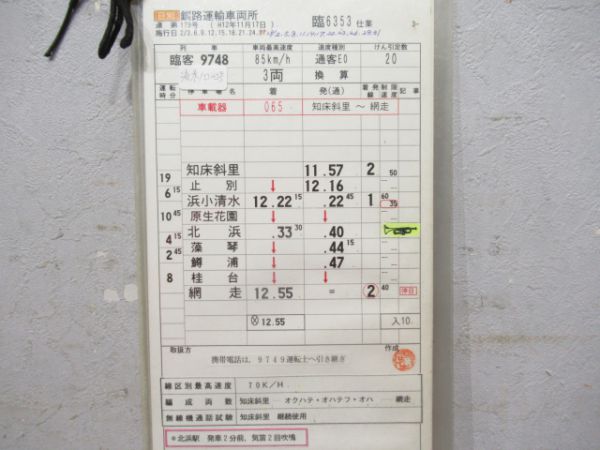 釧路運輸車両所 臨6353仕業
達 第 179号 ( H12年11月17日 )
施行日 2/3.6.9.12.15.18.21.24.27
列車 車両最高速度 速度種別 けん引定数
臨客 9748 85km/h 通客E0 20
3両 換算
運転時分 停車場名 着 発(通) 着発線 制限速度 記事
車載器 065 知床斜里 ~ 網走
知床斜里 11.57 2 50
19
止別 ↓ 12.16
6 15
浜小清水 12.22 15 .22 45 1 60 35
原生花園 ↓ ↓
10 45
北浜 .33 30 .40
4 15
藻琴 ↓ .44 15
2 45
鱒浦 ↓ .47
8
桂台 ↓ ↓
網走 12.55 = 2 40 停目
Ⓧ12.55 入10.
取扱方 作成
携帯電話は、9749運転士へ引き継ぎ
線区別最高速度 70K/H
編成両数 知床斜里 オクハテ・オハテフ・オハ 網走
無線機通話試験 知床斜里 継続使用
*北浜駅 発車2分前、気笛2回吹鳴